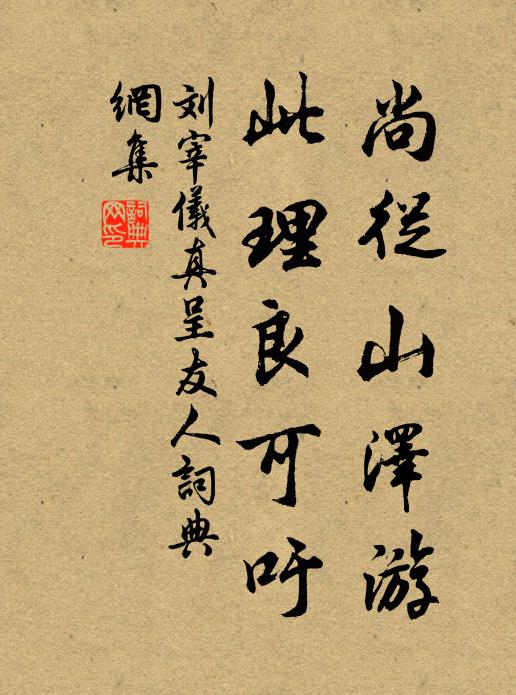 尚從山澤游
此理良可吁
刘宰儀真呈友人詞典
網集
詞典
网印